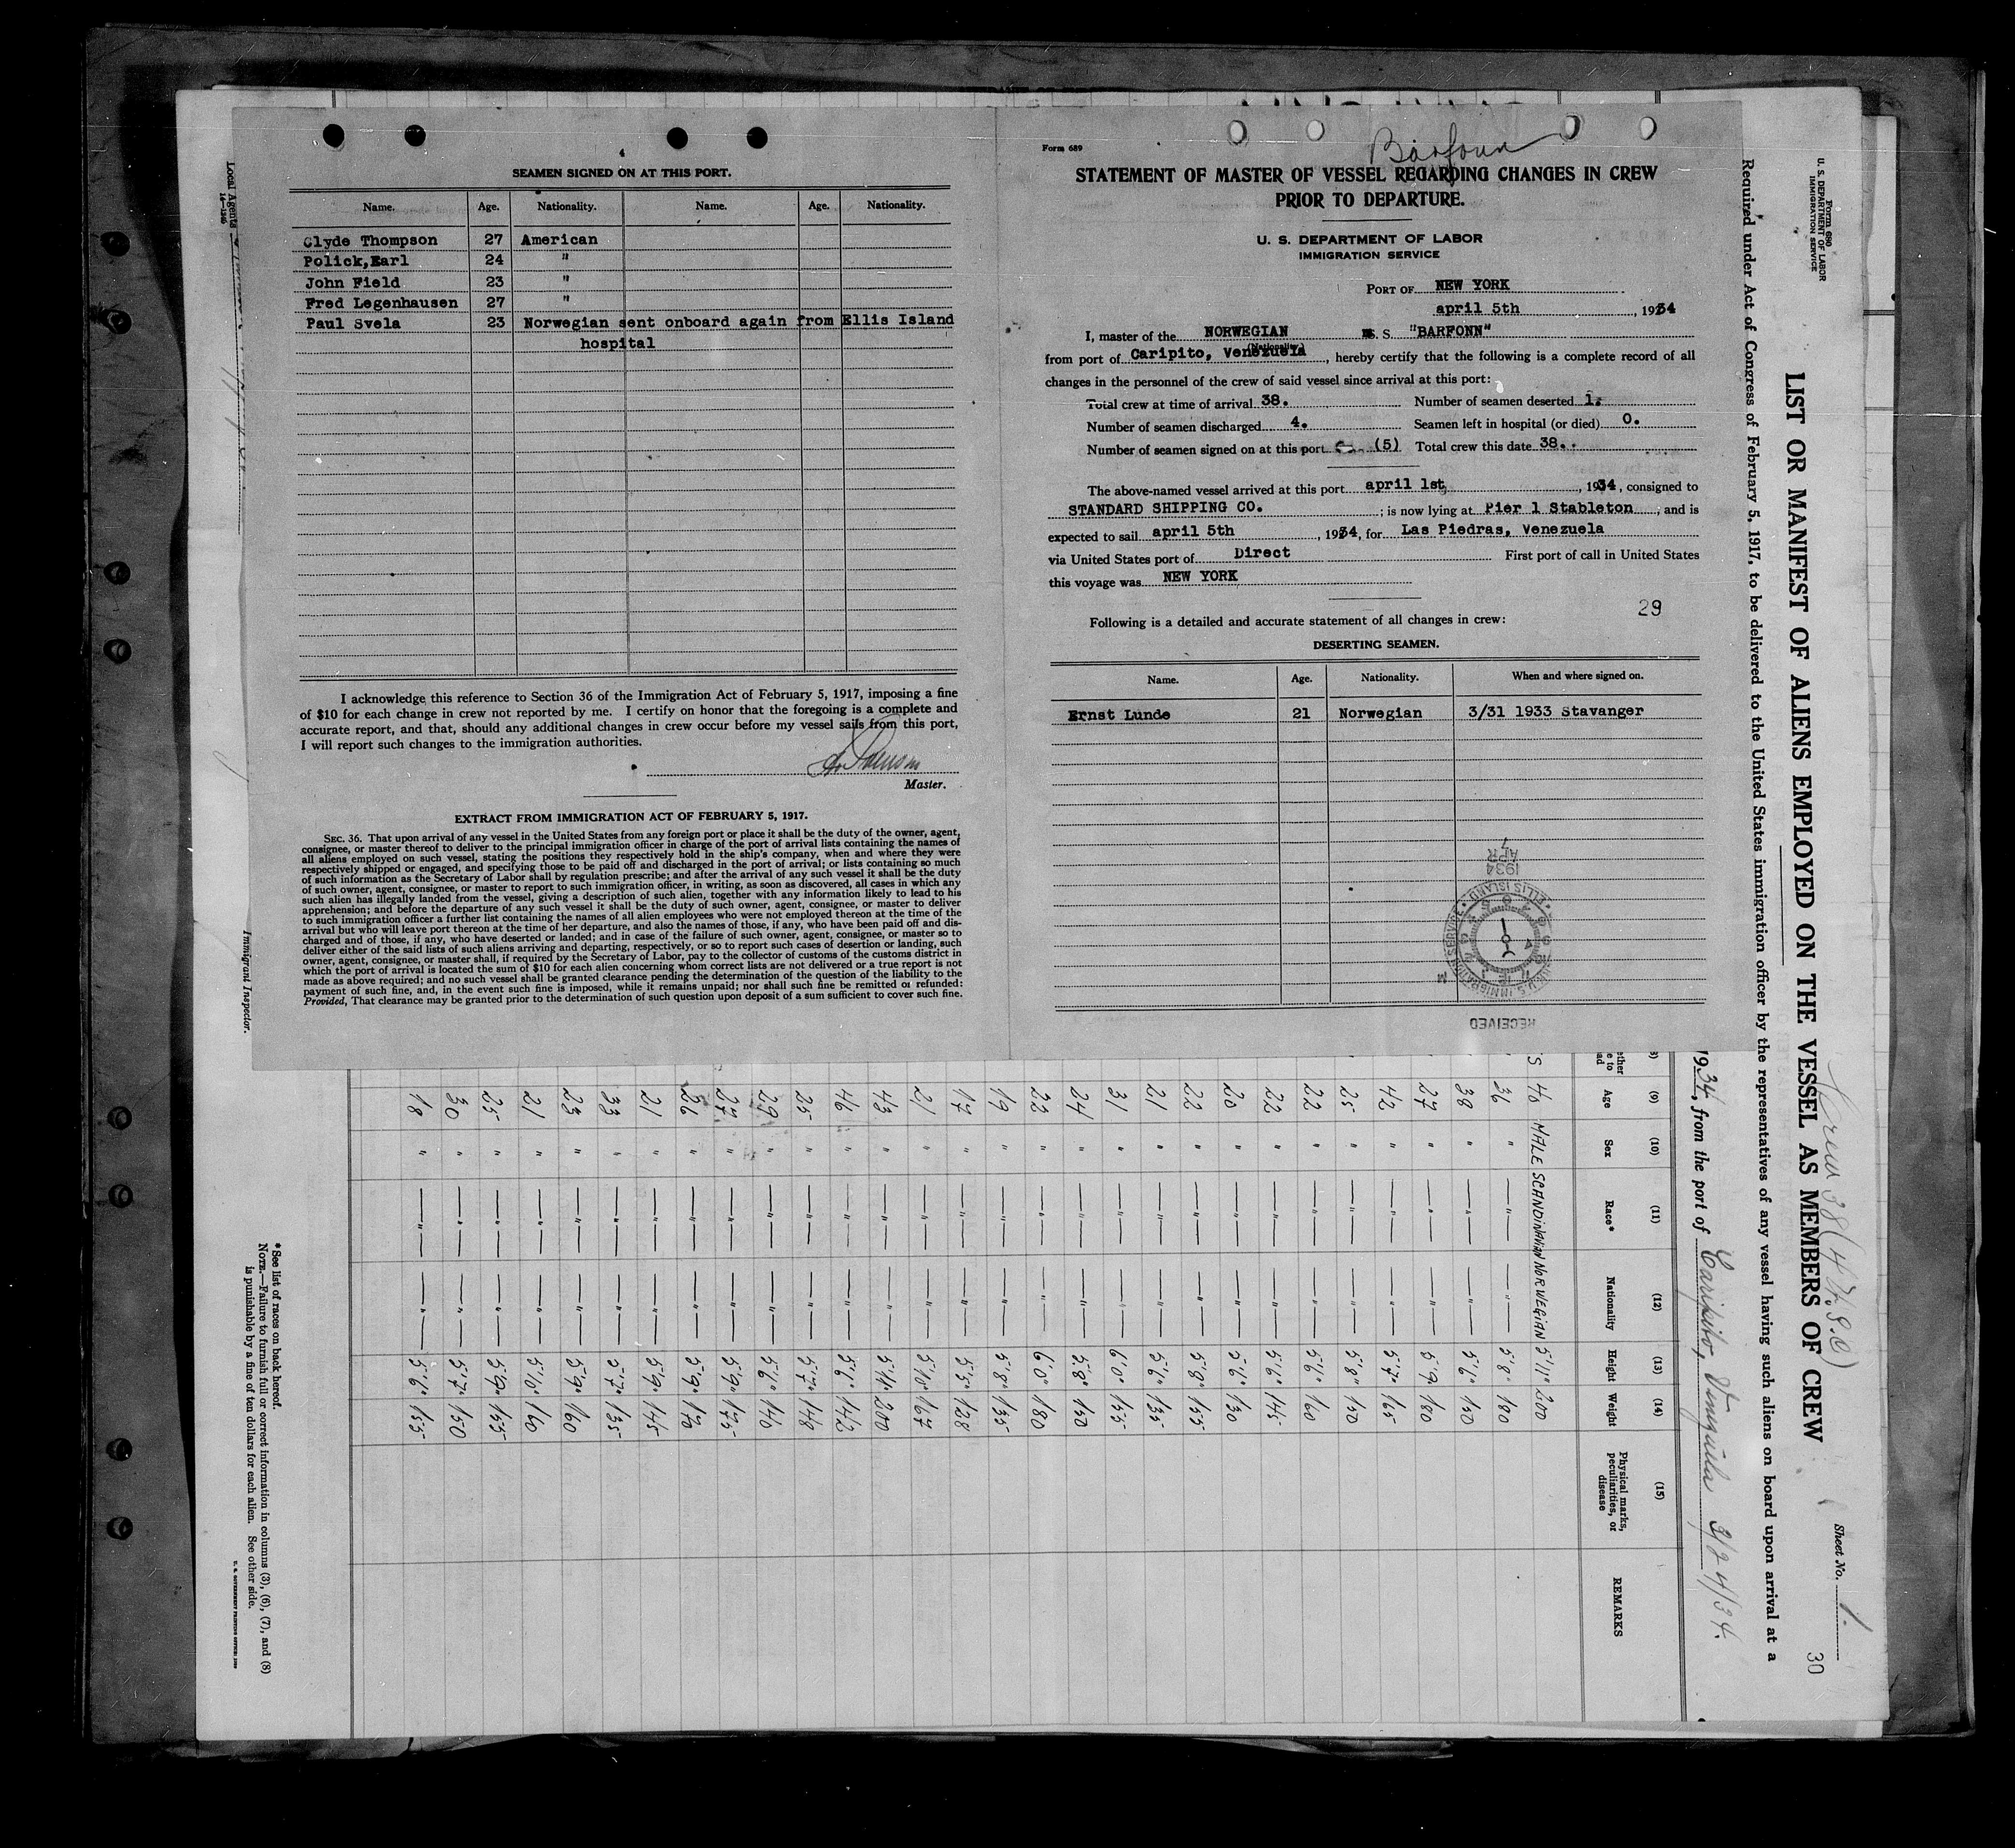 4
SEAMEN SIGNED ON AT THIS PORT.
Name. Age. Nationality. Name. Age. Nationality.
Clyde Thompson 27 American
Polick,Earl 24 "
John Field 23 "
Fred Legenhausen 27 "
Paul Svela 23 Norwegian sent onboard again from Ellis Island
hospital
I acknowledge this reference to Section 36 of the Immigration Act of February 5, 1917, imposing a fine
of $10 for each change in crew not reported by me. I certify on honor that the foregoing is a complete and
accurate report, and that, should any additional changes in crew occur before my vessel sails from this port,
I will report such changes to the immigration authorities.
Master.
EXTRACT FROM IMMIGRATION ACT OF FEBRUARY 5, 1917.
SEC. 36. That upon arrival of any vessel in the United States from any foreign port or place it shall be the duty of the owner, agent,
consignee, or master thereof to deliver to the principal immigration officer in charge of the port of arrival lists containing the names of
all aliens employed on such vessel, stating the positions they respectively hold in the ship's company, when and where they were
respectively shipped or engaged, and specifying those to be paid off and discharged in the port of arrival; or lists containing so much
of such information as the Secretary of Labor shall by regulation prescribe; and after the arrival of any such vessel it shall be the duty
of such owner, agent, consignee, or master to report to such immigration officer, in writing, as soon as discovered, all cases in which any
such alien has illegally landed from the vessel, giving a description of such alien, together with any information likely to lead to his
apprehension; and before the departure of any such vessel it shall be the duty of such owner, agent, consignee, or master to deliver
to such immigration officer a further list containing the names of all alien employees who were not employed thereon at the time of the
arrival but who will leave port thereon at the time of her departure, and also the names of those, if any, who have been paid off and dis-
charged and of those, if any, who have deserted or landed; and in case of the failure of such owner, agent, consignee, or master so to
deliver either of the said lists of such aliens arriving and departing, respectively, or so to report such cases of desertion or landing, such
owner, agent, consignee, or master shall, if required by the Secretary of Labor, pay to the collector of customs of the customs district in
which the port of arrival is located the sum of $10 for each alien concerning whom correct lists are not delivered or a true report is not
made as above required; and no such vessel shall be granted clearance pending the determination of the question of the liability to the
payment of such fine, and, in the event such fine is imposed, while it remains unpaid; nor shall such fine be remitted or refunded:
Provided, That clearance may be granted prior to the determination of such question upon deposit of a sum sufficient to cover such fine.
Form 689
Barfonn
STATEMENT OF MASTER OF VESSEL REGARDING CHANGES IN CREW
PRIOR TO DEPARTURE.
U. S. DEPARTMENT OF LABOR
IMMIGRATION SERVICE
PORT OF NEW YORK
april 5th, 1934
I, master of the NORWEGIAN S. S. "BARFONN"
(Nationality)
from port of Caripito, Venezuela, hereby certify that the following is a complete record of all
changes in the personnel of the crew of said vessel since arrival at this port:
Total crew at time of arrival 38. Number of seamen deserted 1.
Number of seamen discharged 4. Seamen left in hospital (or died) 0.
Number of seamen signed on at this port (5) Total crew this date 38.
The above-named vessel arrived at this port april 1st, 1934, consigned to
STANDARD SHIPPING CO.; is now lying at Pier 1 Stableton, and is
expected to sail april 5th, 1934, for Las Piedras, Venezuela
via United States port of Direct First port of call in United States
this voyage was NEW YORK
29
Following is a detailed and accurate statement of all changes in crew:
DESERTING SEAMEN.
Name. Age. Nationality. When and where signed on.
Ernst Lunde 21 Norwegian 3/31 1933 Stavanger
RECEIVED
U.S. IMMIGRATION SERVICE ELLIS ISLAND
1934 APR 7
Form 680
U. S. DEPARTMENT OF LABOR
IMMIGRATION SERVICE
Sheet No. 1.
30
Crew 38
LIST OR MANIFEST OF ALIENS EMPLOYED ON THE VESSEL AS MEMBERS OF CREW
Required under Act of Congress of February 5, 1917, to be delivered to the United States immigration officer by the representatives of any vessel having such aliens on board upon arrival at a
1934, from the port of Caripito, Venezuela 3/24/34.
(9) (10) (11) (12) (13) (14) (15)
Age Sex Race* Nationality Height Weight Physical marks, peculiarities, or disease REMARKS
40 MALE SCANDINAVIAN NORWEGIAN 5'11" 200
36 " " " 5'8" 180
38 " " " 5'6" 150
27 " " " 5'9" 180
42 " " " 5'7" 165
25 " " " 5'8" 150
22 " " " 5'6" 160
22 " " " 5'6" 145
20 " " " 5'6" 130
22 " " " 5'8" 155
21 " " " 5'6" 135
31 " " " 6'0" 155
24 " " " 5'8" 150
22 " " " 6'0" 180
19 " " " 5'8" 135
17 " " " 5'5" 128
21 " " " 5'10" 167
43 " " " 5'11" 200
46 " " " 5'6" 142
25 " " " 5'7" 148
29 " " " 5'6" 146
27 " " " 5'9" 175
26 " " " 5'9" 170
21 " " " 5'9" 145
33 " " " 5'7" 135
23 " " " 5'9" 160
21 " " " 5'10" 160
25 " " " 5'9" 155
30 " " " 5'7" 150
18 " " " 5'6" 155
*See list of races on back hereof.
NOTE.—Failure to furnish full or correct information in columns (3), (6), (7), and (8)
is punishable by a fine of ten dollars for each alien. See other side.
U. S. GOVERNMENT PRINTING OFFICE
Local Agents
14-1240
Immigrant Inspector.